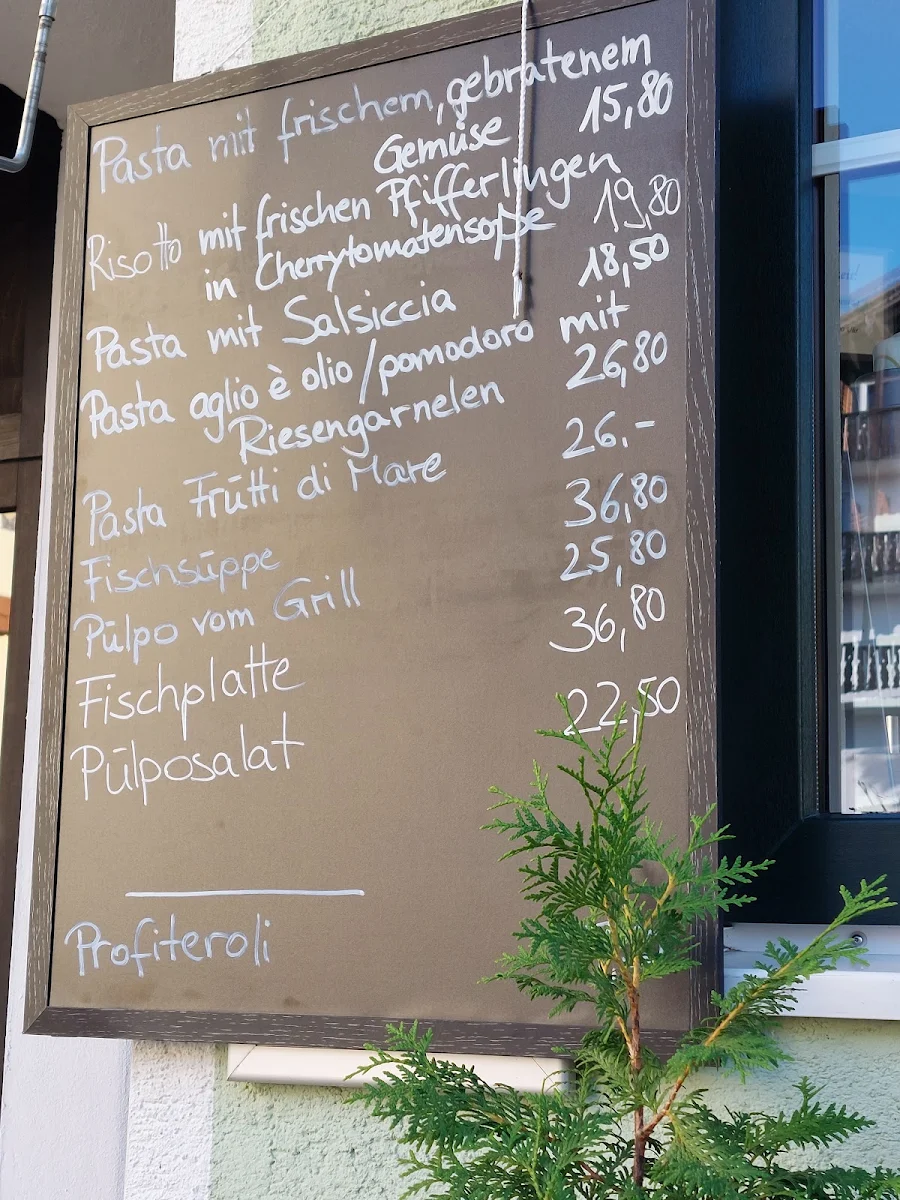 Pasta mit frischem, gebratenem
Gemüse 15,80
Risotto mit frischen Pfifferlingen
in Cherrytomatensoße 19,80
Pasta mit Salsiccia 18,50
Pasta aglio è olio/pomodoro mit
Riesengarnelen 26,80
Pasta Frutti di Mare 26.-
Fischsuppe 36,80
Pulpo vom Grill 25,80
Fischplatte 36,80
Pulposalat 22,50
Profiteroli